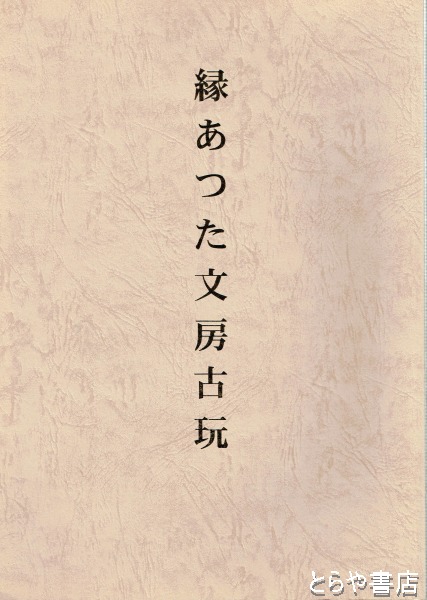 縁あつた文房古玩
とらや書店